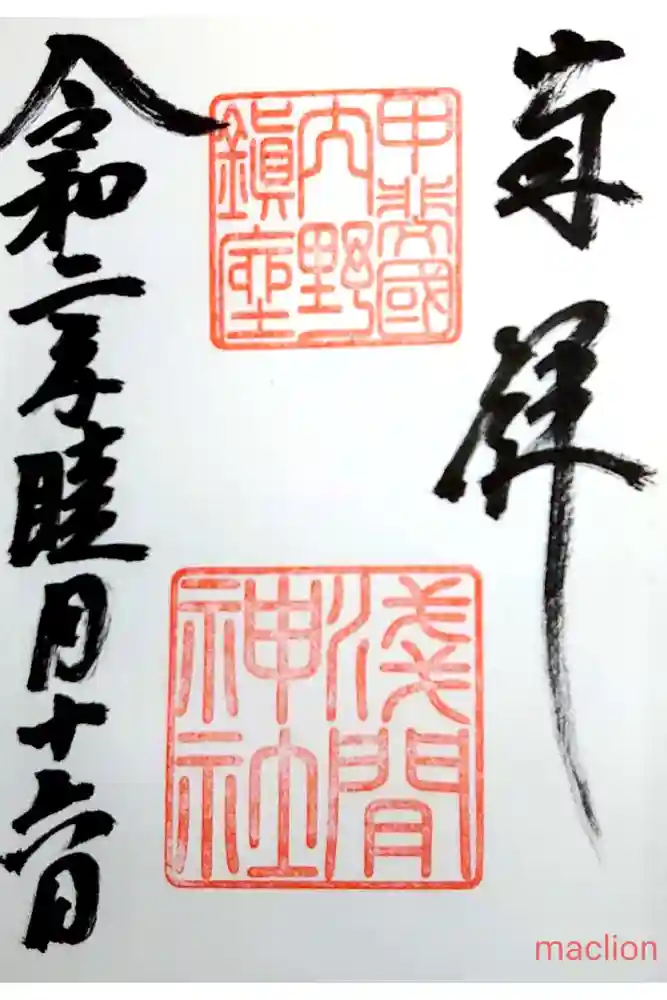 奉拝
甲斐國
内野
鎮座
淺間
神社
令和二年睦月十六日
maclion